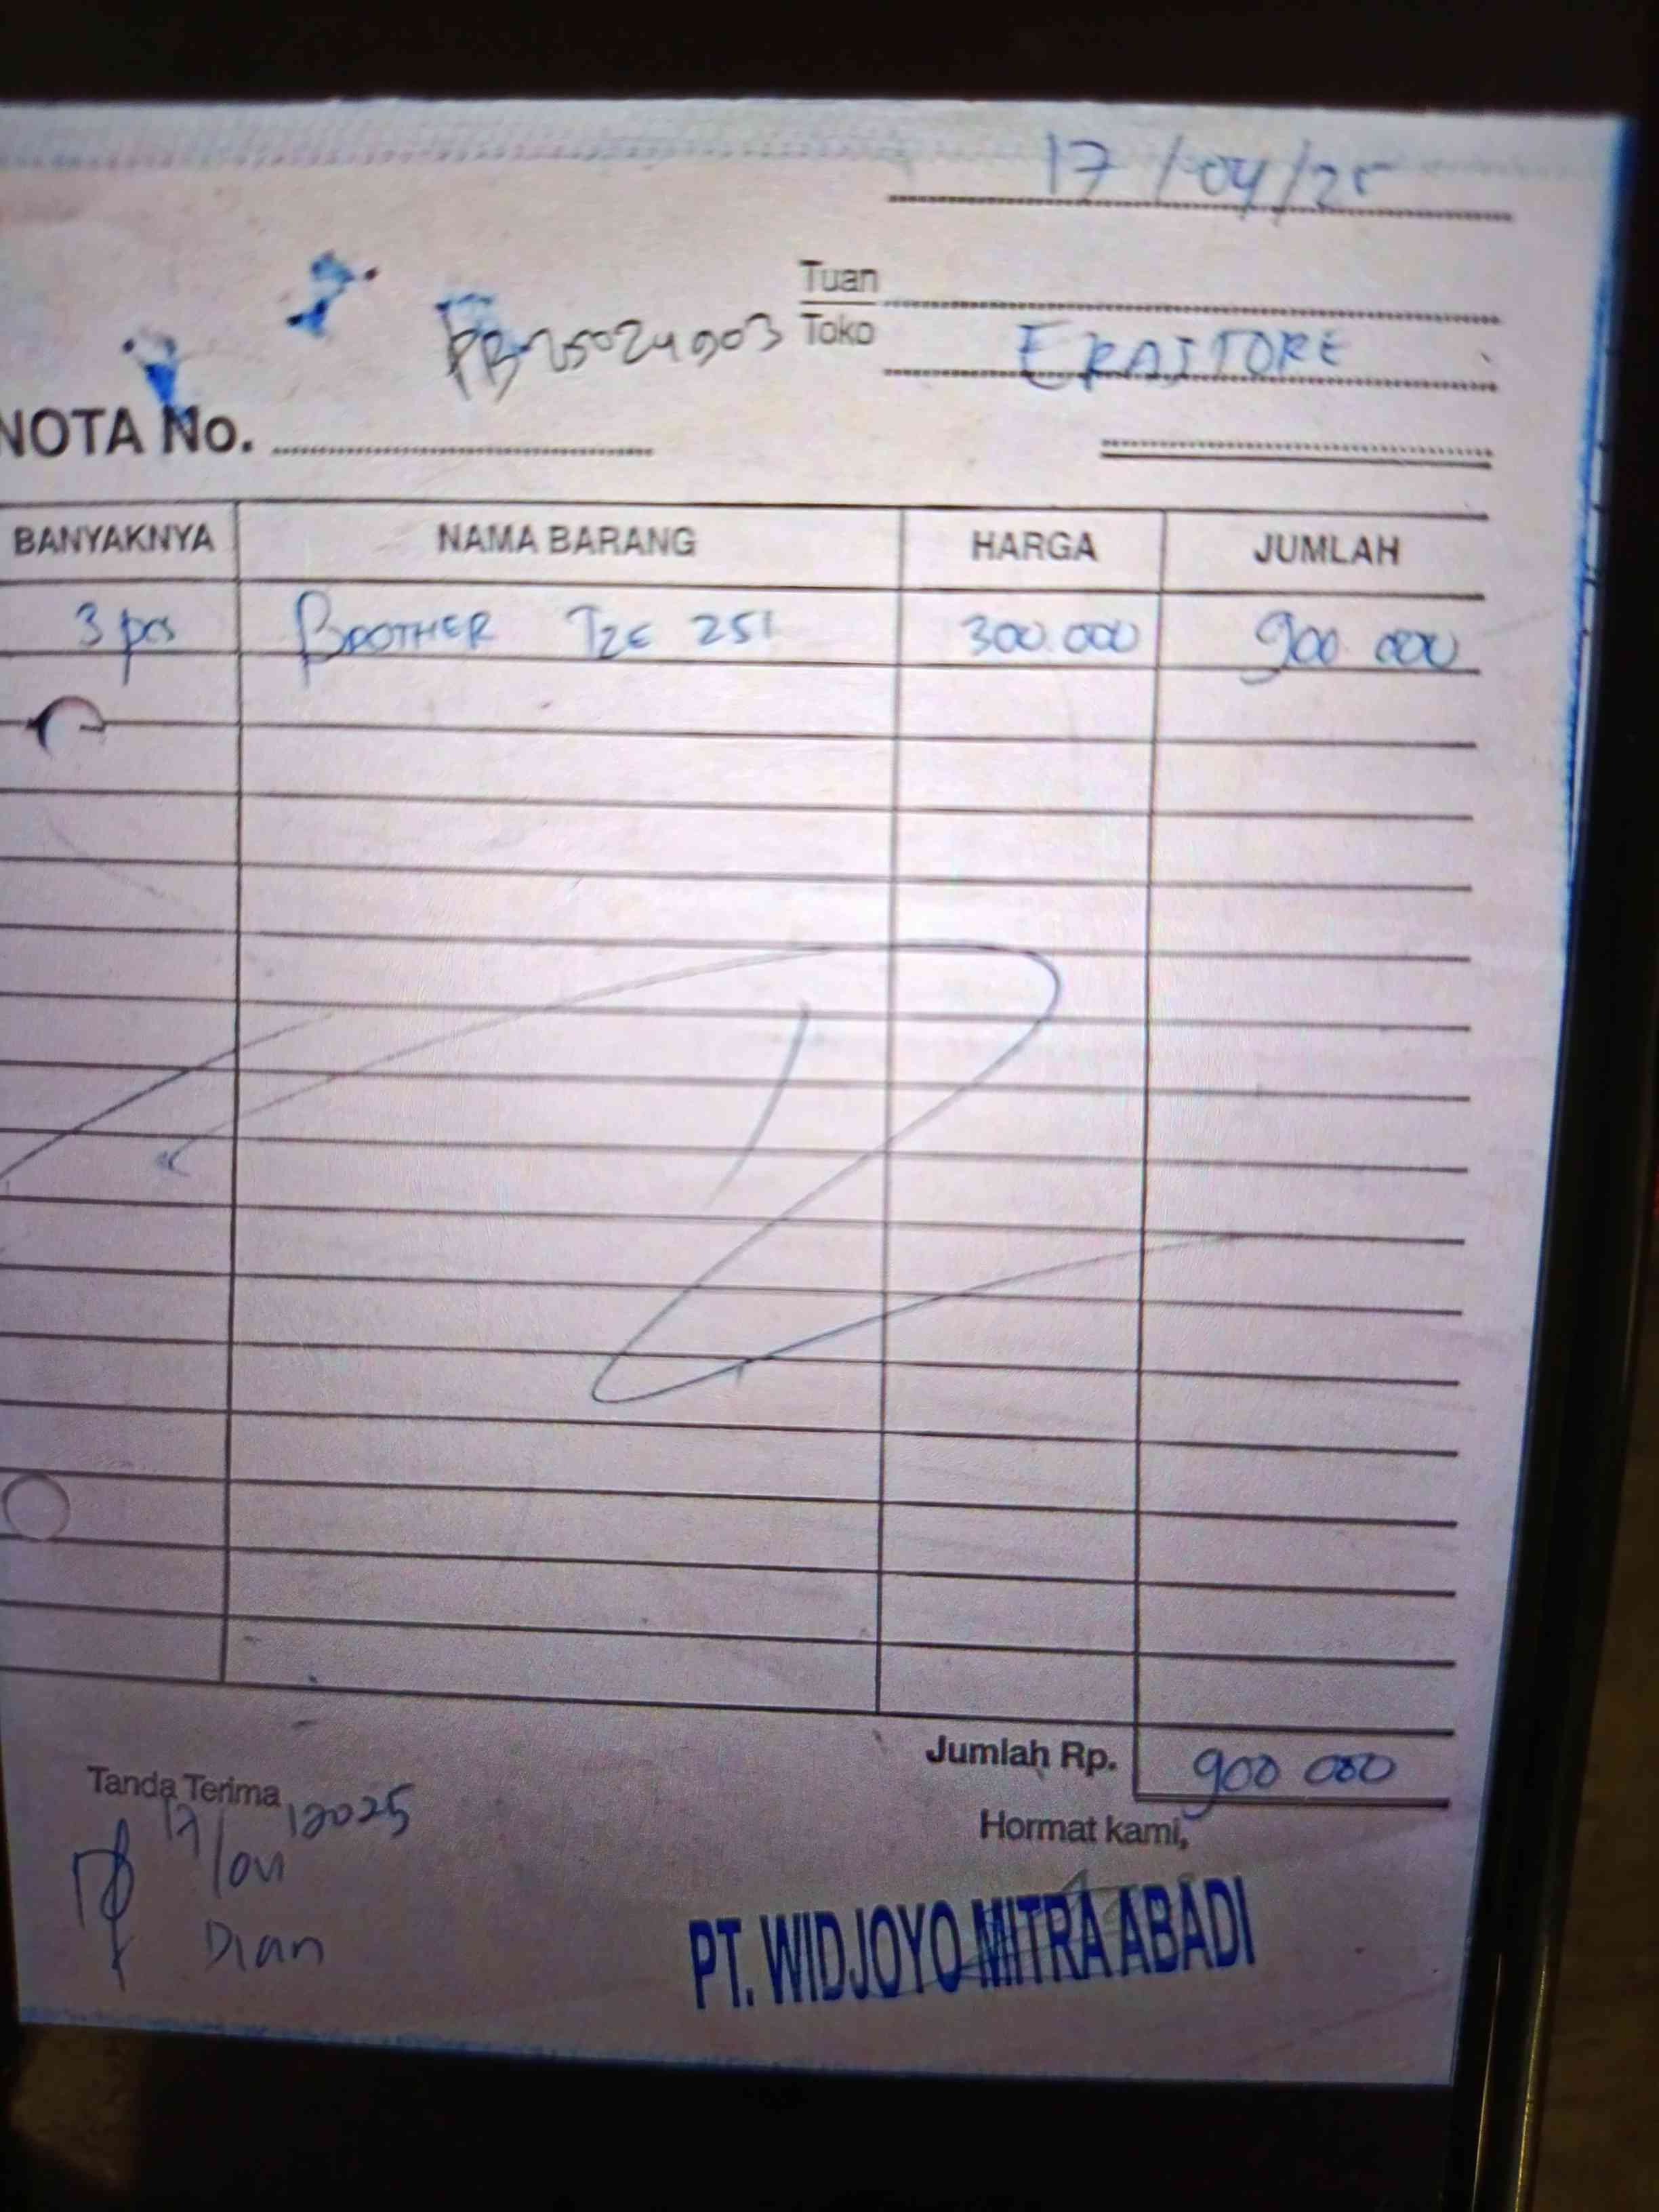 17/04/25
Tuan
Toko ERASTORE
PB25024903
NOTA No.
BANYAKNYA NAMA BARANG HARGA JUMLAH
3 pcs BROTHER TZE 251 300.000 900.000
Jumlah Rp. 900 000
Tanda Terima
17/04/2025
Dian
Hormat kami,
PT. WIDJOYO MITRA ABADI